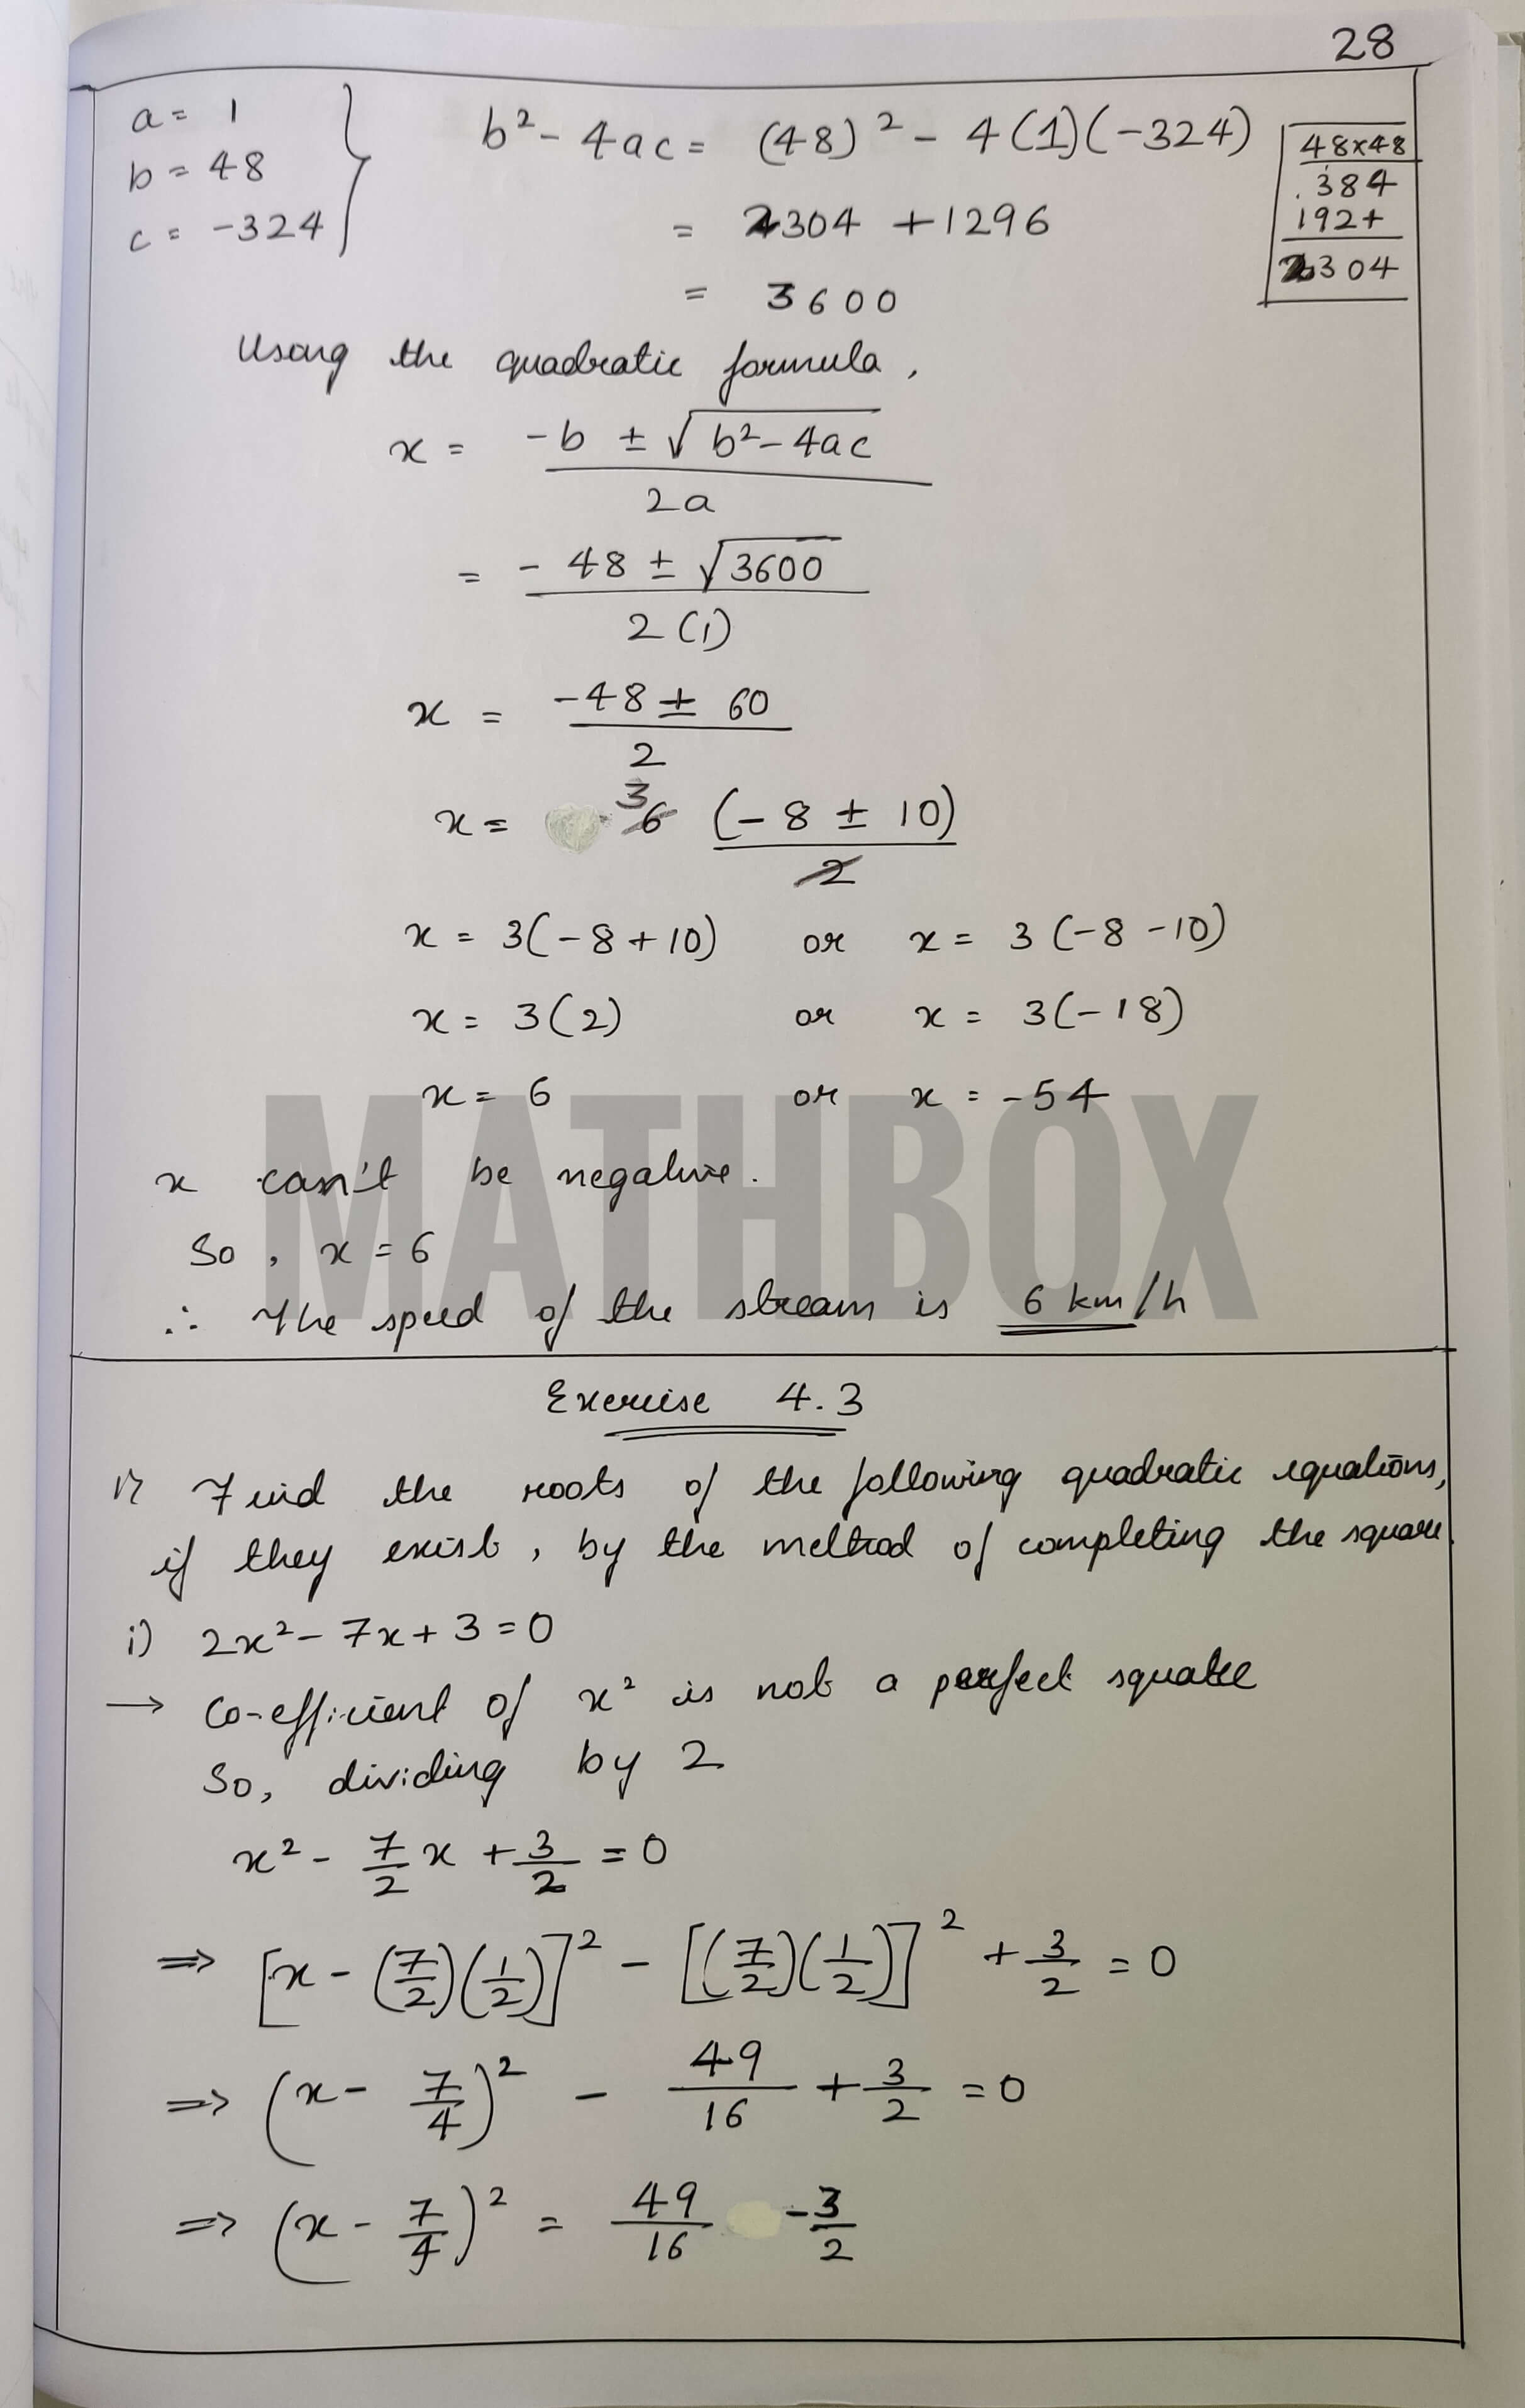 28
a = 1
b = 48
c = -324
b² - 4ac = (48)² - 4(1)(-324)
= 2304 + 1296
= 3600
48×48
384
192+
2304
Using the quadratic formula,
x = (-b ± √(b² - 4ac)) / 2a
= (-48 ± √3600) / 2(1)
x = (-48 ± 60) / 2
x = 3 6 (-8 ± 10) / 2
x = 3(-8+10) or x = 3(-8-10)
x = 3(2) or x = 3(-18)
x = 6 or x = -54
x can't be negative.
So, x = 6
∴ The speed of the stream is 6 km/h
MATHBOX
Exercise 4.3
1) Find the roots of the following quadratic equations,
if they exist, by the method of completing the square.
i) 2x² - 7x + 3 = 0
→ Co-efficient of x² is not a perfect square
So, dividing by 2
x² - 7/2 x + 3/2 = 0
⇒ [x - (7/2)(1/2)]² - [(7/2)(1/2)]² + 3/2 = 0
⇒ (x - 7/4)² - 49/16 + 3/2 = 0
⇒ (x - 7/4)² = 49/16 - 3/2